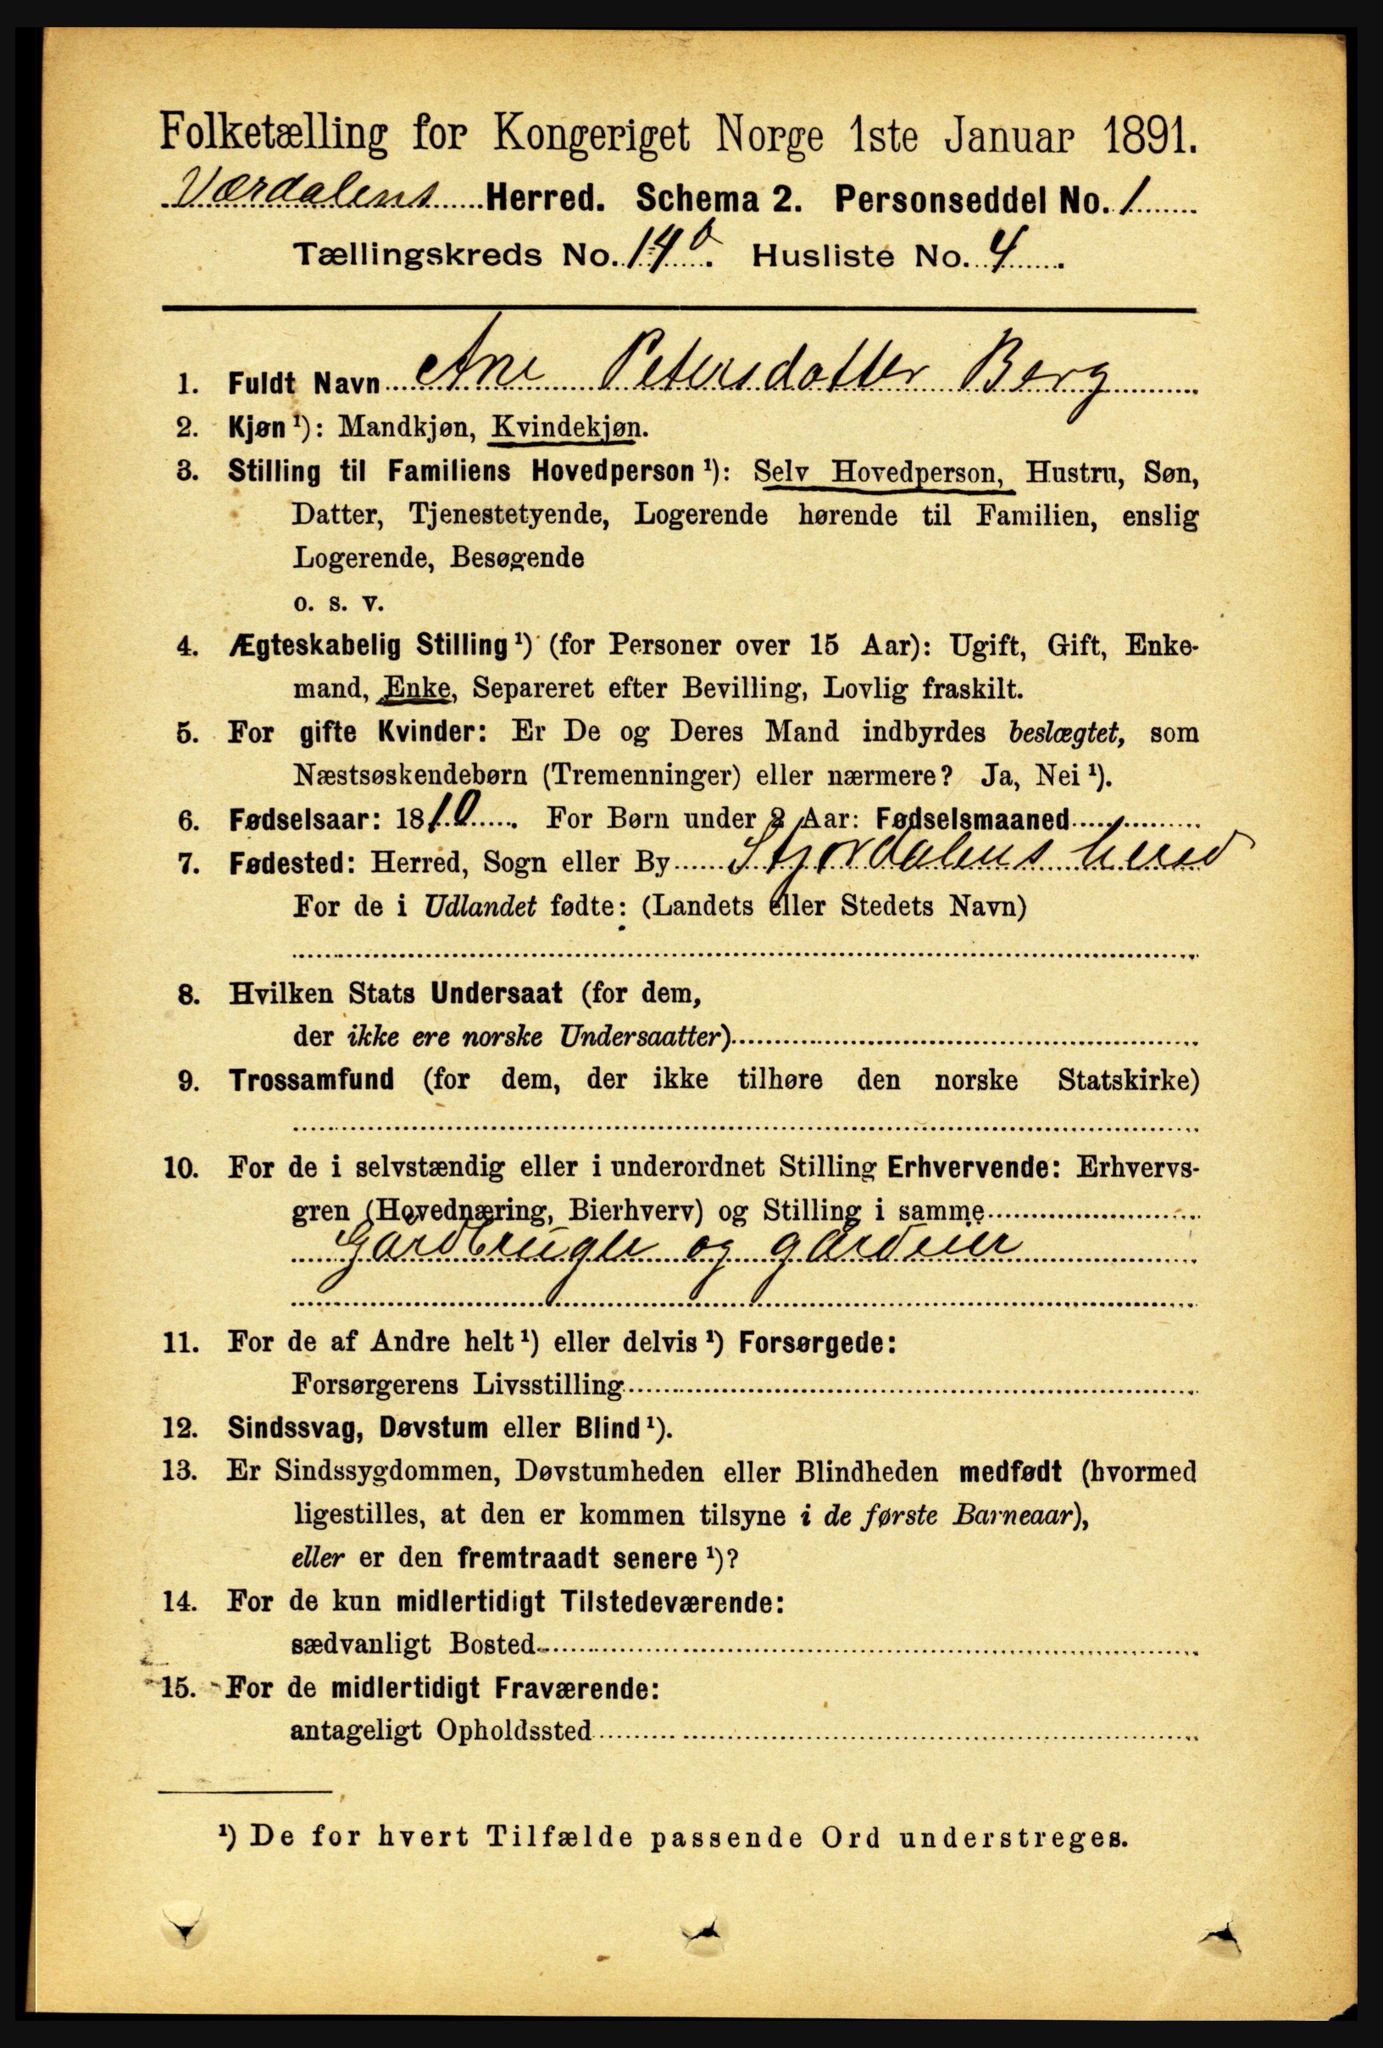 Folketælling for Kongeriget Norge 1ste Januar 1891.
Værdalens Herred. Schema 2. Personseddel No. 1
Tællingskreds No. 14b. Husliste No. 4
1. Fuldt Navn Ane Petersdatter Berg
2. Kjøn¹): Mandkjøn, Kvindekjøn.
3. Stilling til Familiens Hovedperson¹): Selv Hovedperson, Hustru, Søn,
Datter, Tjenestetyende, Logerende hørende til Familien, enslig
Logerende, Besøgende
o. s. v.
4. Ægteskabelig Stilling¹) (for Personer over 15 Aar): Ugift, Gift, Enke-
mand, Enke, Separeret efter Bevilling, Lovlig fraskilt.
5. For gifte Kvinder: Er De og Deres Mand indbyrdes beslægtet, som
Næstsøskendebørn (Tremenninger) eller nærmere? Ja, Nei¹).
6. Fødselsaar: 1810. For Børn under 2 Aar: Fødselsmaaned
7. Fødested: Herred, Sogn eller By Stjordalens herred
For de i Udlandet fødte: (Landets eller Stedets Navn)
8. Hvilken Stats Undersaat (for dem,
der ikke ere norske Undersaatter)
9. Trossamfund (for dem, der ikke tilhøre den norske Statskirke)
10. For de i selvstændig eller i underordnet Stilling Erhvervende: Erhvervs-
gren (Hovednæring, Bierhverv) og Stilling i samme
og
11. For de af Andre helt¹) eller delvis¹) Forsørgede:
Forsørgerens Livsstilling
12. Sindssvag, Døvstum eller Blind¹).
13. Er Sindssygdommen, Døvstumheden eller Blindheden medfødt (hvormed
ligestilles, at den er kommen tilsyne i de første Barneaar),
eller er den fremtraadt senere¹)?
14. For de kun midlertidigt Tilstedeværende:
sædvanligt Bosted
15. For de midlertidigt Fraværende:
antageligt Opholdssted
¹) De for hvert Tilfælde passende Ord understreges.